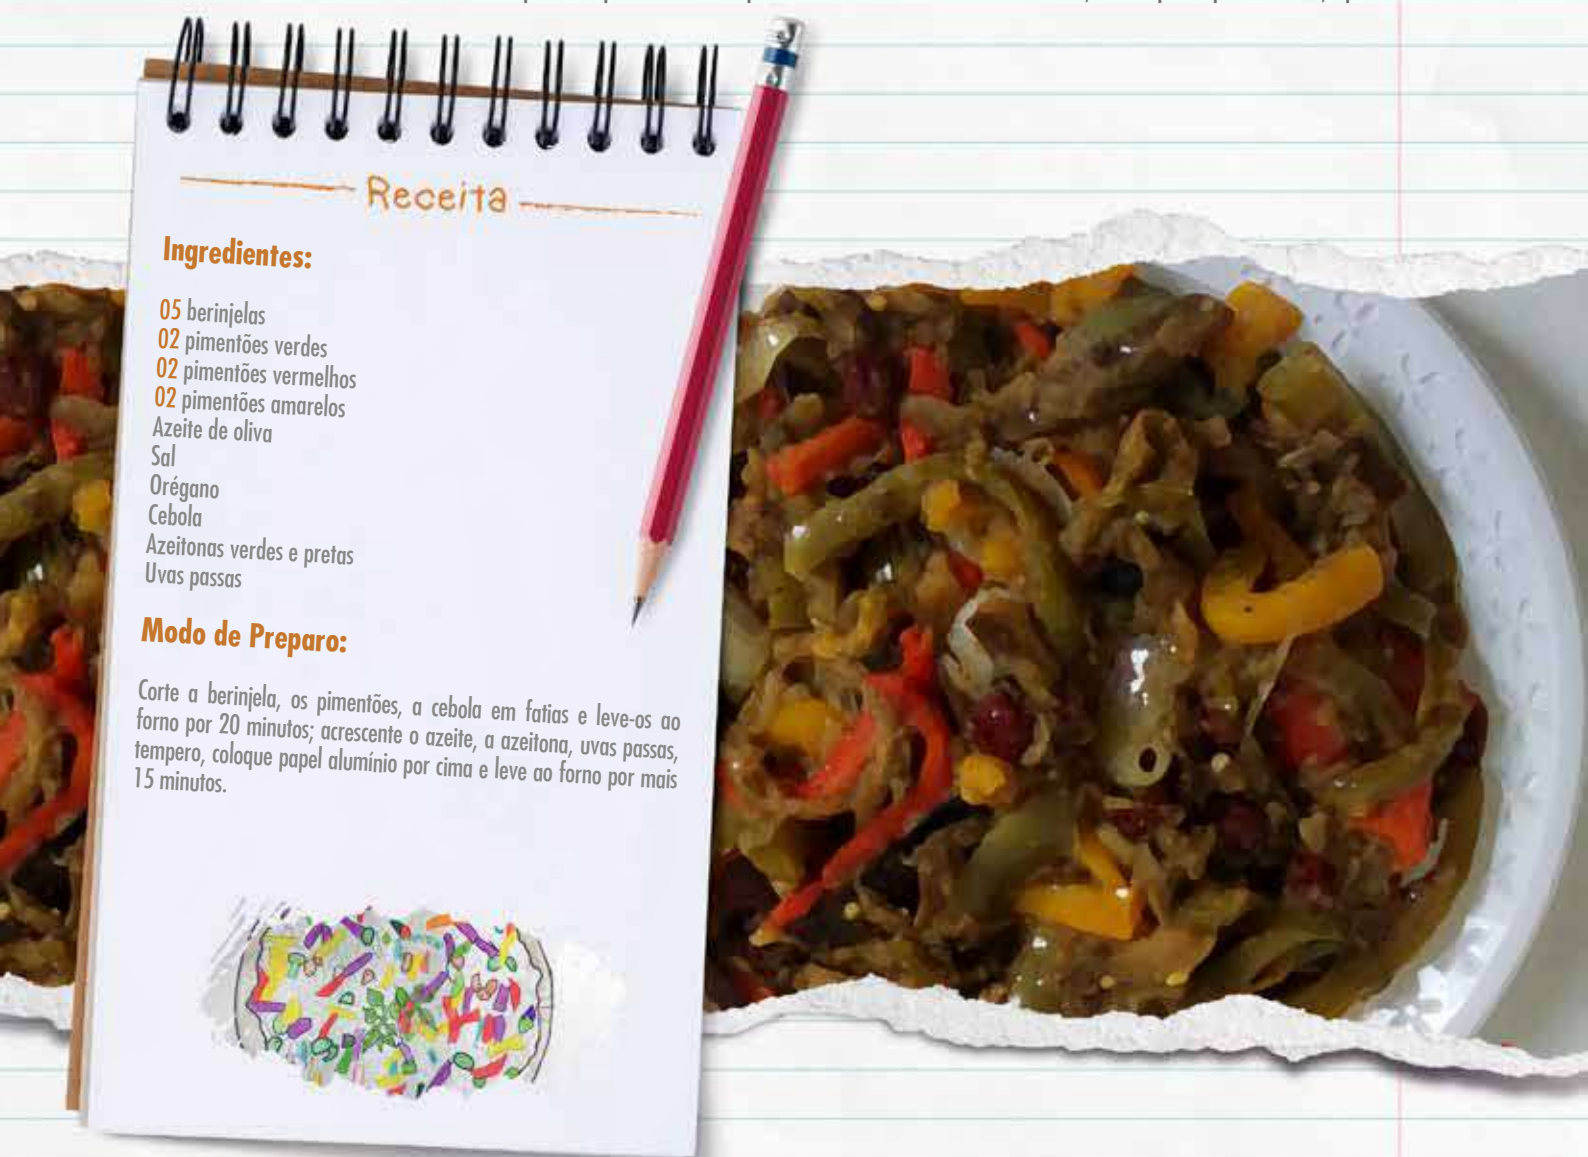 Receita
Ingredientes:
05 berinjelas
02 pimentões verdes
02 pimentões vermelhos
02 pimentões amarelos
Azeite de oliva
Sal
Orégano
Cebola
Azeitonas verdes e pretas
Uvas passas
Modo de Preparo:
Corte a berinjela, os pimentões, a cebola em fatias e leve-os ao
forno por 20 minutos; acrescente o azeite, a azeitona, uvas passas,
tempero, coloque papel alumínio por cima e leve ao forno por mais
15 minutos.